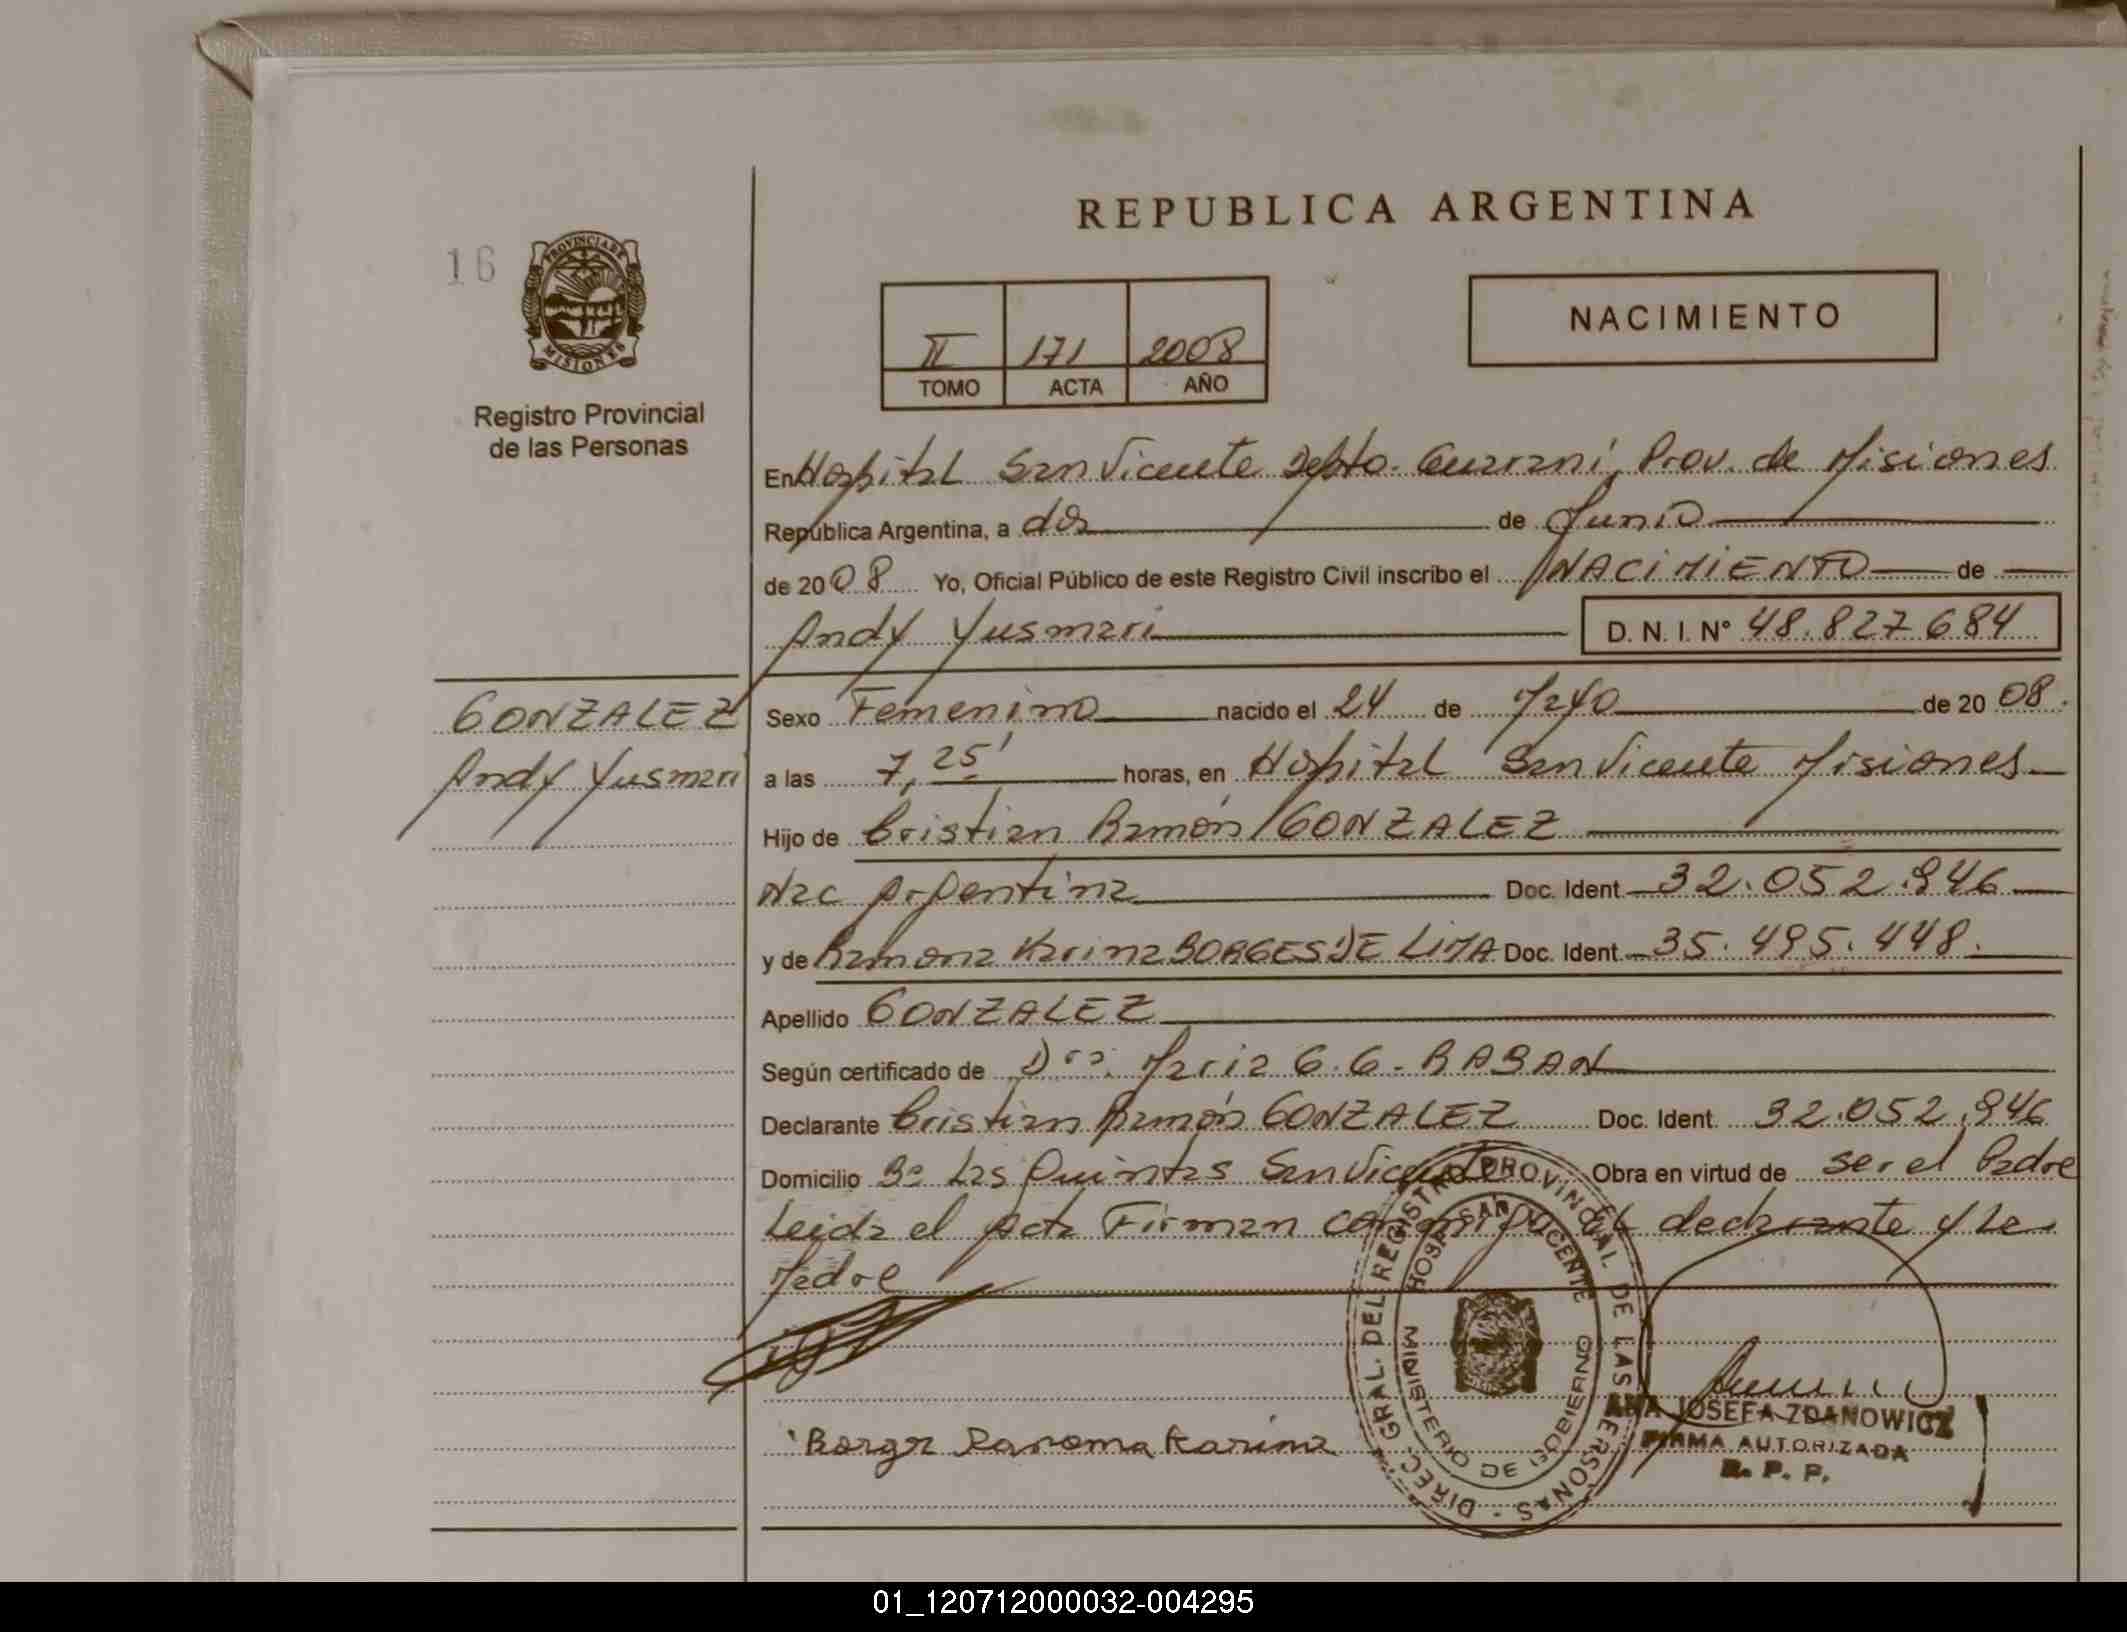 REPUBLICA ARGENTINA
16
PROVINCIA DE
MISIONES
Registro Provincial
de las Personas
II 171 2008
TOMO ACTA AÑO
NACIMIENTO
En Hospital San Vicente Depto. Guaraní Prov. de Misiones
República Argentina, a dos de Junio
de 2008 Yo, Oficial Público de este Registro Civil inscribo el NACIMIENTO de
Andy Yusmari D. N. I. N° 48.827684
GONZALEZ
Andy Yusmari
Sexo Femenino nacido el 24 de Mayo de 2008.
a las 7,25' horas, en Hospital San Vicente Misiones
Hijo de Cristian Ramón GONZALEZ
Nac Argentina Doc. Ident 32.052.946
y de Ramona Karina BORGES DE LIMA Doc. Ident. 35.495.448.
Apellido GONZALEZ
Según certificado de Dra. Maria G.G. RABAN
Declarante Cristian Ramón GONZALEZ Doc. Ident. 32.052.946
Domicilio Bº Las Quintas San Vicente Obra en virtud de ser el Padre
Leida el Acta Firman conmigo el declarante y la
Madre
DIREC. GRAL. DEL REGISTRO PROVINCIAL DE LAS PERSONAS -
HOSP. SAN VICENTE
MINISTERIO DE GOBIERNO
ANA JOSEFA ZDANOWICZ
FIRMA AUTORIZADA
R. P. P.
Karina
01_120712000032-004295